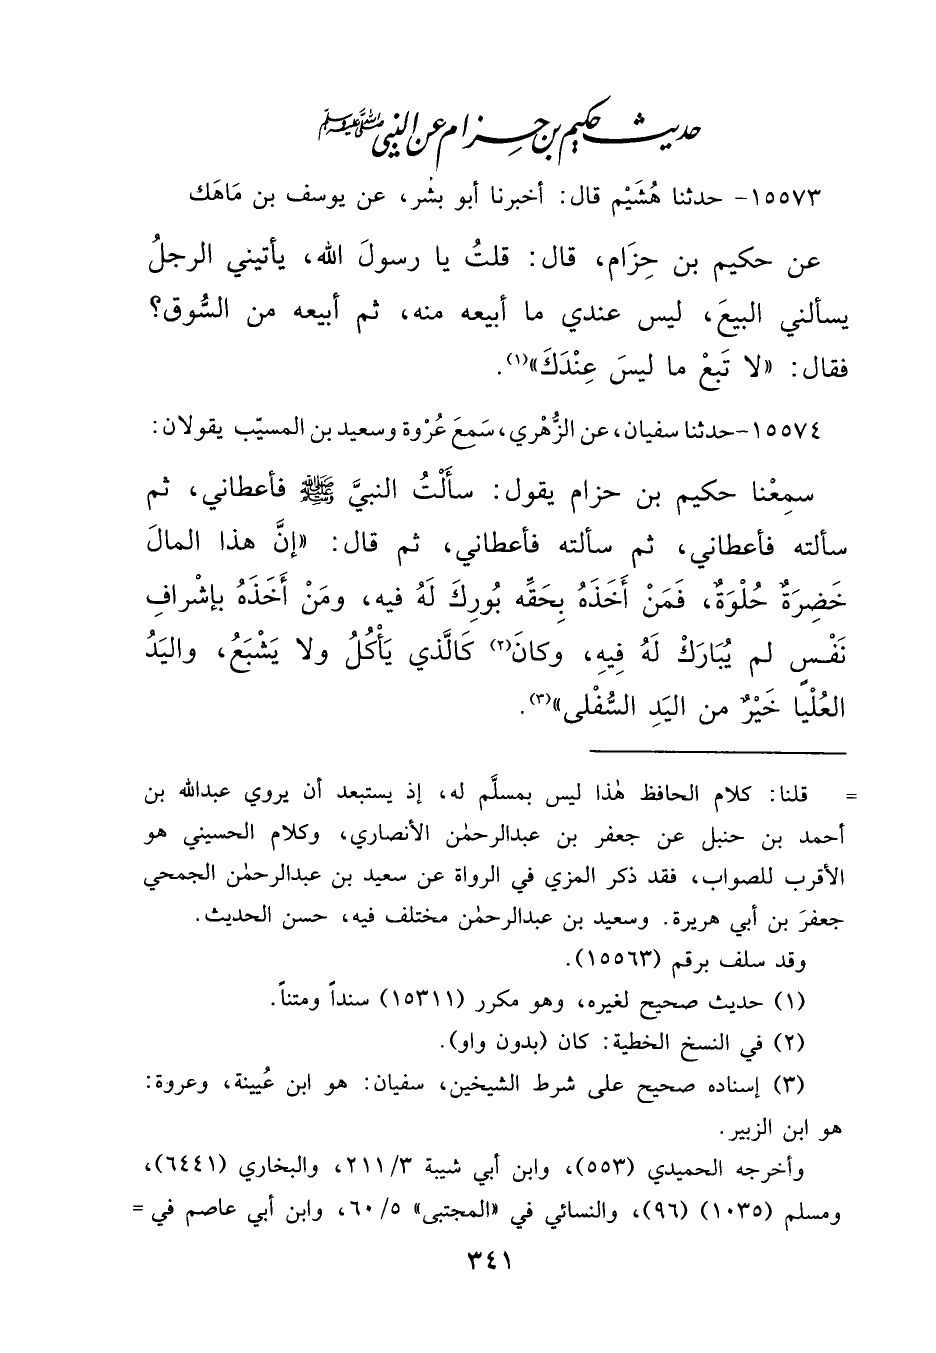 حديث حكيم بن حزام عن النبي ﷺ
١٥٥٧٣- حدثنا هُشَيْم قال: أخبرنا أبو بشْر، عن يوسف بن مَاهَك
عن حكيم بن حِزَام، قال: قلتُ يا رسولَ الله، يأتيني الرجلُ
يسألني البيعَ، ليس عندي ما أبيعه منه، ثم أبيعه من السُّوق؟
فقال: «لا تَبِعْ ما ليسَ عِنْدَكَ»(١).
١٥٥٧٤-حدثنا سفيان، عن الزُّهْري، سَمِعَ عُرْوة وسعيد بن المسيّب يقولان:
سمِعْنا حكيم بن حزام يقول: سأَلْتُ النبيَّ ﷺ فأعطاني، ثم
سألته فأعطاني، ثم سألته فأعطاني، ثم قال: «إنَّ هذا المالَ
خَضِرَةٌ حُلْوَةٌ، فَمَنْ أَخَذَهُ بِحَقِّه بُورِكَ لَهُ فيه، ومَنْ أَخَذَهُ بإشْرافِ
نَفْسٍ لم يُبَارَكْ لَهُ فِيهِ، وكانَ(٢) كَالَّذي يَأْكُلُ ولا يَشْبَعُ، واليَدُ
العُلْيا خَيْرٌ من اليَدِ السُّفْلى»(٣).
= قلنا: كلام الحافظ هٰذا ليس بمسلَّم له، إذ يستبعد أن يروي عبدالله بن
أحمد بن حنبل عن جعفر بن عبدالرحمٰن الأنصاري، وكلام الحسيني هو
الأقرب للصواب، فقد ذكر المزي في الرواة عن سعيد بن عبدالرحمٰن الجمحي
جعفرَ بن أبي هريرة. وسعيد بن عبدالرحمٰن مختلف فيه، حسن الحديث.
وقد سلف برقم (١٥٥٦٣).
(١) حديث صحيح لغيره، وهو مكرر (١٥٣١١) سنداً ومتناً.
(٢) في النسخ الخطية: كان (بدون واو).
(٣) إسناده صحيح على شرط الشيخين، سفيان: هو ابن عُيينة، وعروة:
هو ابن الزبير.
وأخرجه الحميدي (٥٥٣)، وابن أبي شيبة ٢١١/٣، والبخاري (٦٤٤١)،
ومسلم (١٠٣٥) (٩٦)، والنسائي في «المجتبى» ٦٠/٥، وابن أبي عاصم في =
٣٤١